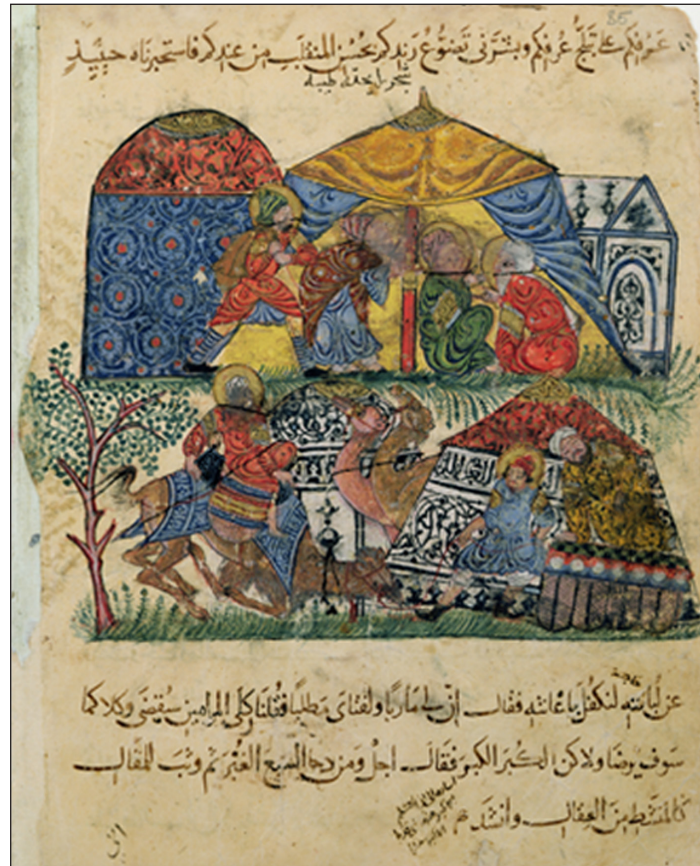 85
عرفكم على تبلج عرفكم وبشرني تضوع رندكم بحسن المنقلب من عندكم فاستخبرناه حينئذ
شجر رايحته طيبه
حاجة
عن لبانته لنتكفل باعانته فقال ان لي ماربا ولفتاي مطلبا فقلنا كلى المرامين سيقضى وكلاكما
سوف يرضا ولاكن الكبر الكبر فقال اجل ومن دحا السبع الغبر ثم وثب للمقال
كالمنشط من العقال وانشد